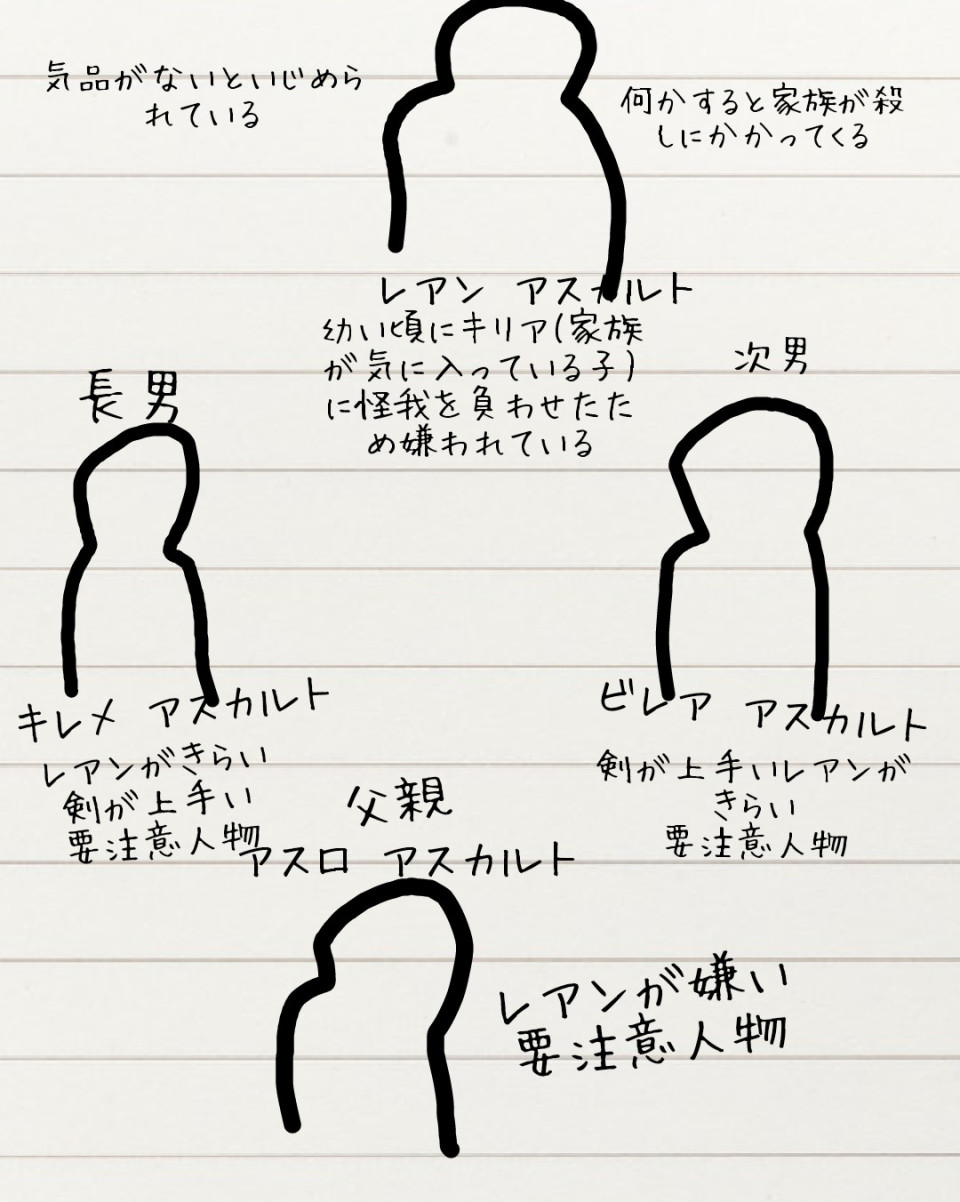 気品がないといじめら
れている
何かすると家族が殺
しにかかってくる
レアン アスカルト
幼い頃にキリア(家族
が気に入っている子)
に怪我を負わせたた
め嫌われている
長男
次男
キレメ アスカルト
レアンがきらい
剣が上手い
要注意人物
ビレア アスカルト
剣が上手いレアンが
きらい
要注意人物
父親
アスロ アスカルト
レアンが嫌い
要注意人物